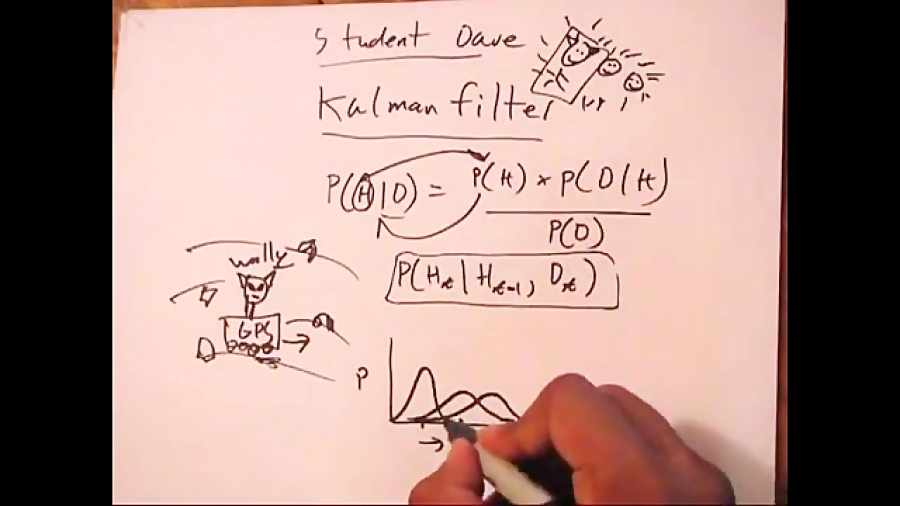 Student Dave
Kalman filter
P(H|D) = P(H) × P(D|H)
P(D)
P(Ht | Ht-1, Dt)
wally
GPS
P